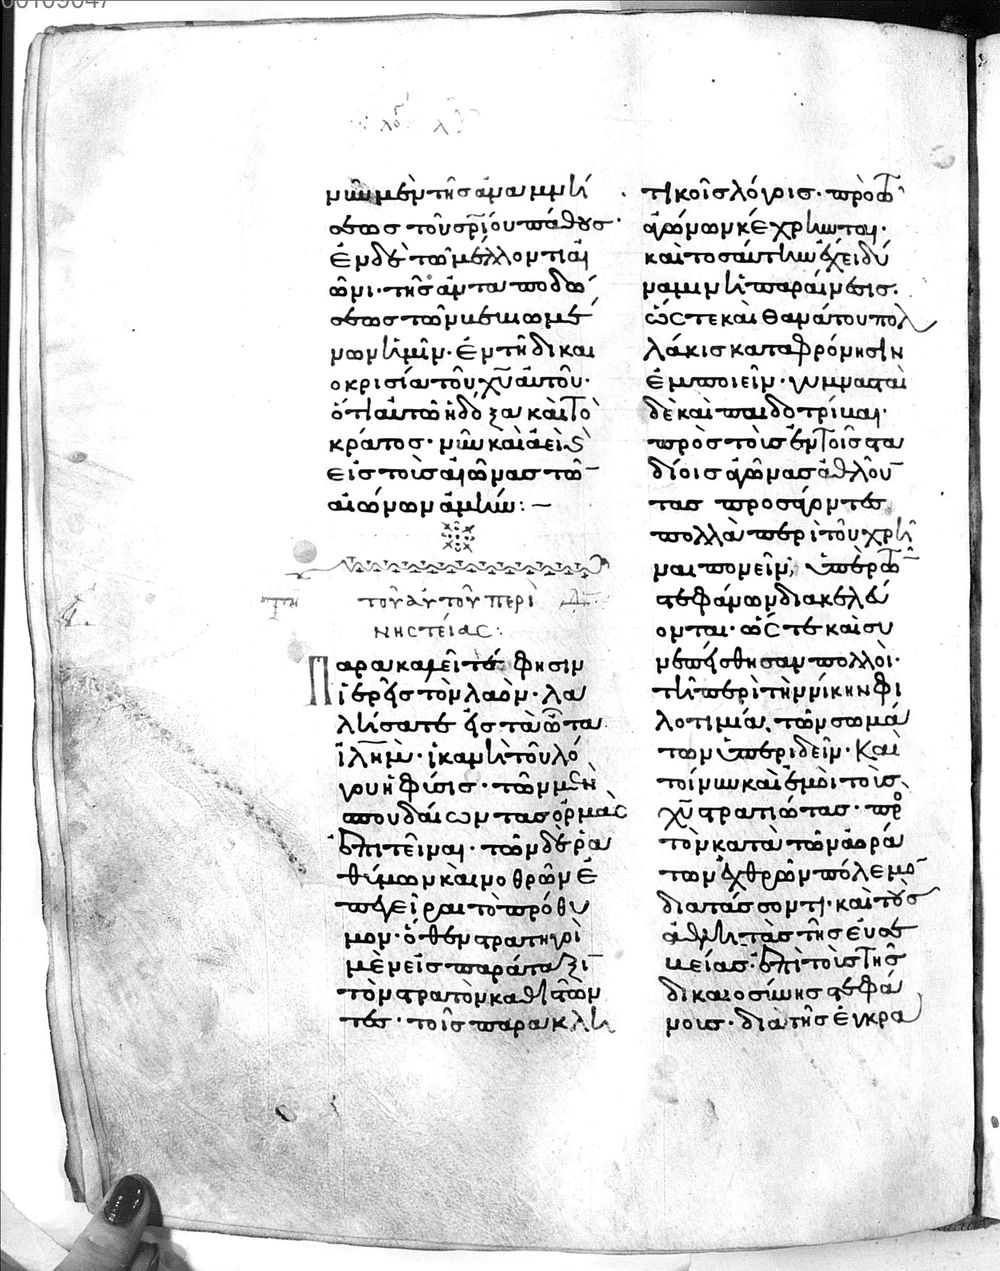 νῦν μὲν τῆς ἀναμνή
σεως τοῦ σρίου πάθους·
ἐν δὲ τῶ μέλλοντι αἰ
ῶνι· τῆς ἀνταποδώ
σεως τῶν βεβιωμέ
νων ἡμῖν· ἐν τῆ δικαι
οκρισία τοῦ χυ αὐτοῦ·
ὅτι αὐτῶ ἡ δόξα καὶ τὸ
κράτος· νῦν καὶ ἀεὶ καὶ
εἰς τοὺς αἰῶνας τῶν
αἰώνων ἀμήν: —
τοῦ αὐτοῦ περὶ
νηστείας:
Παρακαλεῖτε φησιν
ἱερεῖς τὸν λαὸν· λα
λήσατε εἰς τὰ ὦτα
ἱλημ· ἱκανὴ τοῦ λό
γου ἡ φύσις· τῶν μὲν
σπουδαίων τὰς ὁρμὰς
ἐπιτεῖναι· τῶν δὲ ρα
θύμων καὶ νοθρῶν ἐ
πεγεῖραι τὸ πρόθυ
μον· ὅθεν στρατηγοὶ
μὲν εἰς παράταξιν
τὸν στρατὸν καθιστῶν
τες· τοῖς παρακλη
τικοῖς λόγοις· πρὸ τῶν
ἀγώνων κέχρηνται·
καὶ τοσαύτην ἔχει δύ
ναμιν ἡ παραίνεσις·
ὥστε καὶ θανάτου πολ
λάκις καταφρόνησιν
ἐμποιεῖν· γυμνασταὶ
δὲ καὶ παιδοτρίβαι·
πρὸς τοὺς ἐν τοῖς στα
δίοις ἀγῶνας ἀθλοῦν
τας προσάγοντες
πολλὰ περὶ τοῦ χρῆ
ναι πονεῖν, ὑπὲρ τῶν
στεφάνων διακελεύ
ονται· ὥστε καὶ συ
νεπείσθησαν πολλοὶ·
τῆ περὶ τὴν νίκην φι
λοτιμία, τῶν σωμά
των ὑπεριδεῖν· Καὶ
τοίνυν καὶ ἐμοὶ τοὺς
χυ στρατιώτας· πρὸς
τὸν κατὰ τῶν ἀορά
των ἐχθρῶν πόλεμον
διατάσσοντι· καὶ τοὺς
ἀθλητὰς τῆς εὐσε
βείας· ἐπὶ τοὺς τῆς
δικαιοσύνης στεφά
νους· διὰ τῆς ἐγκρα